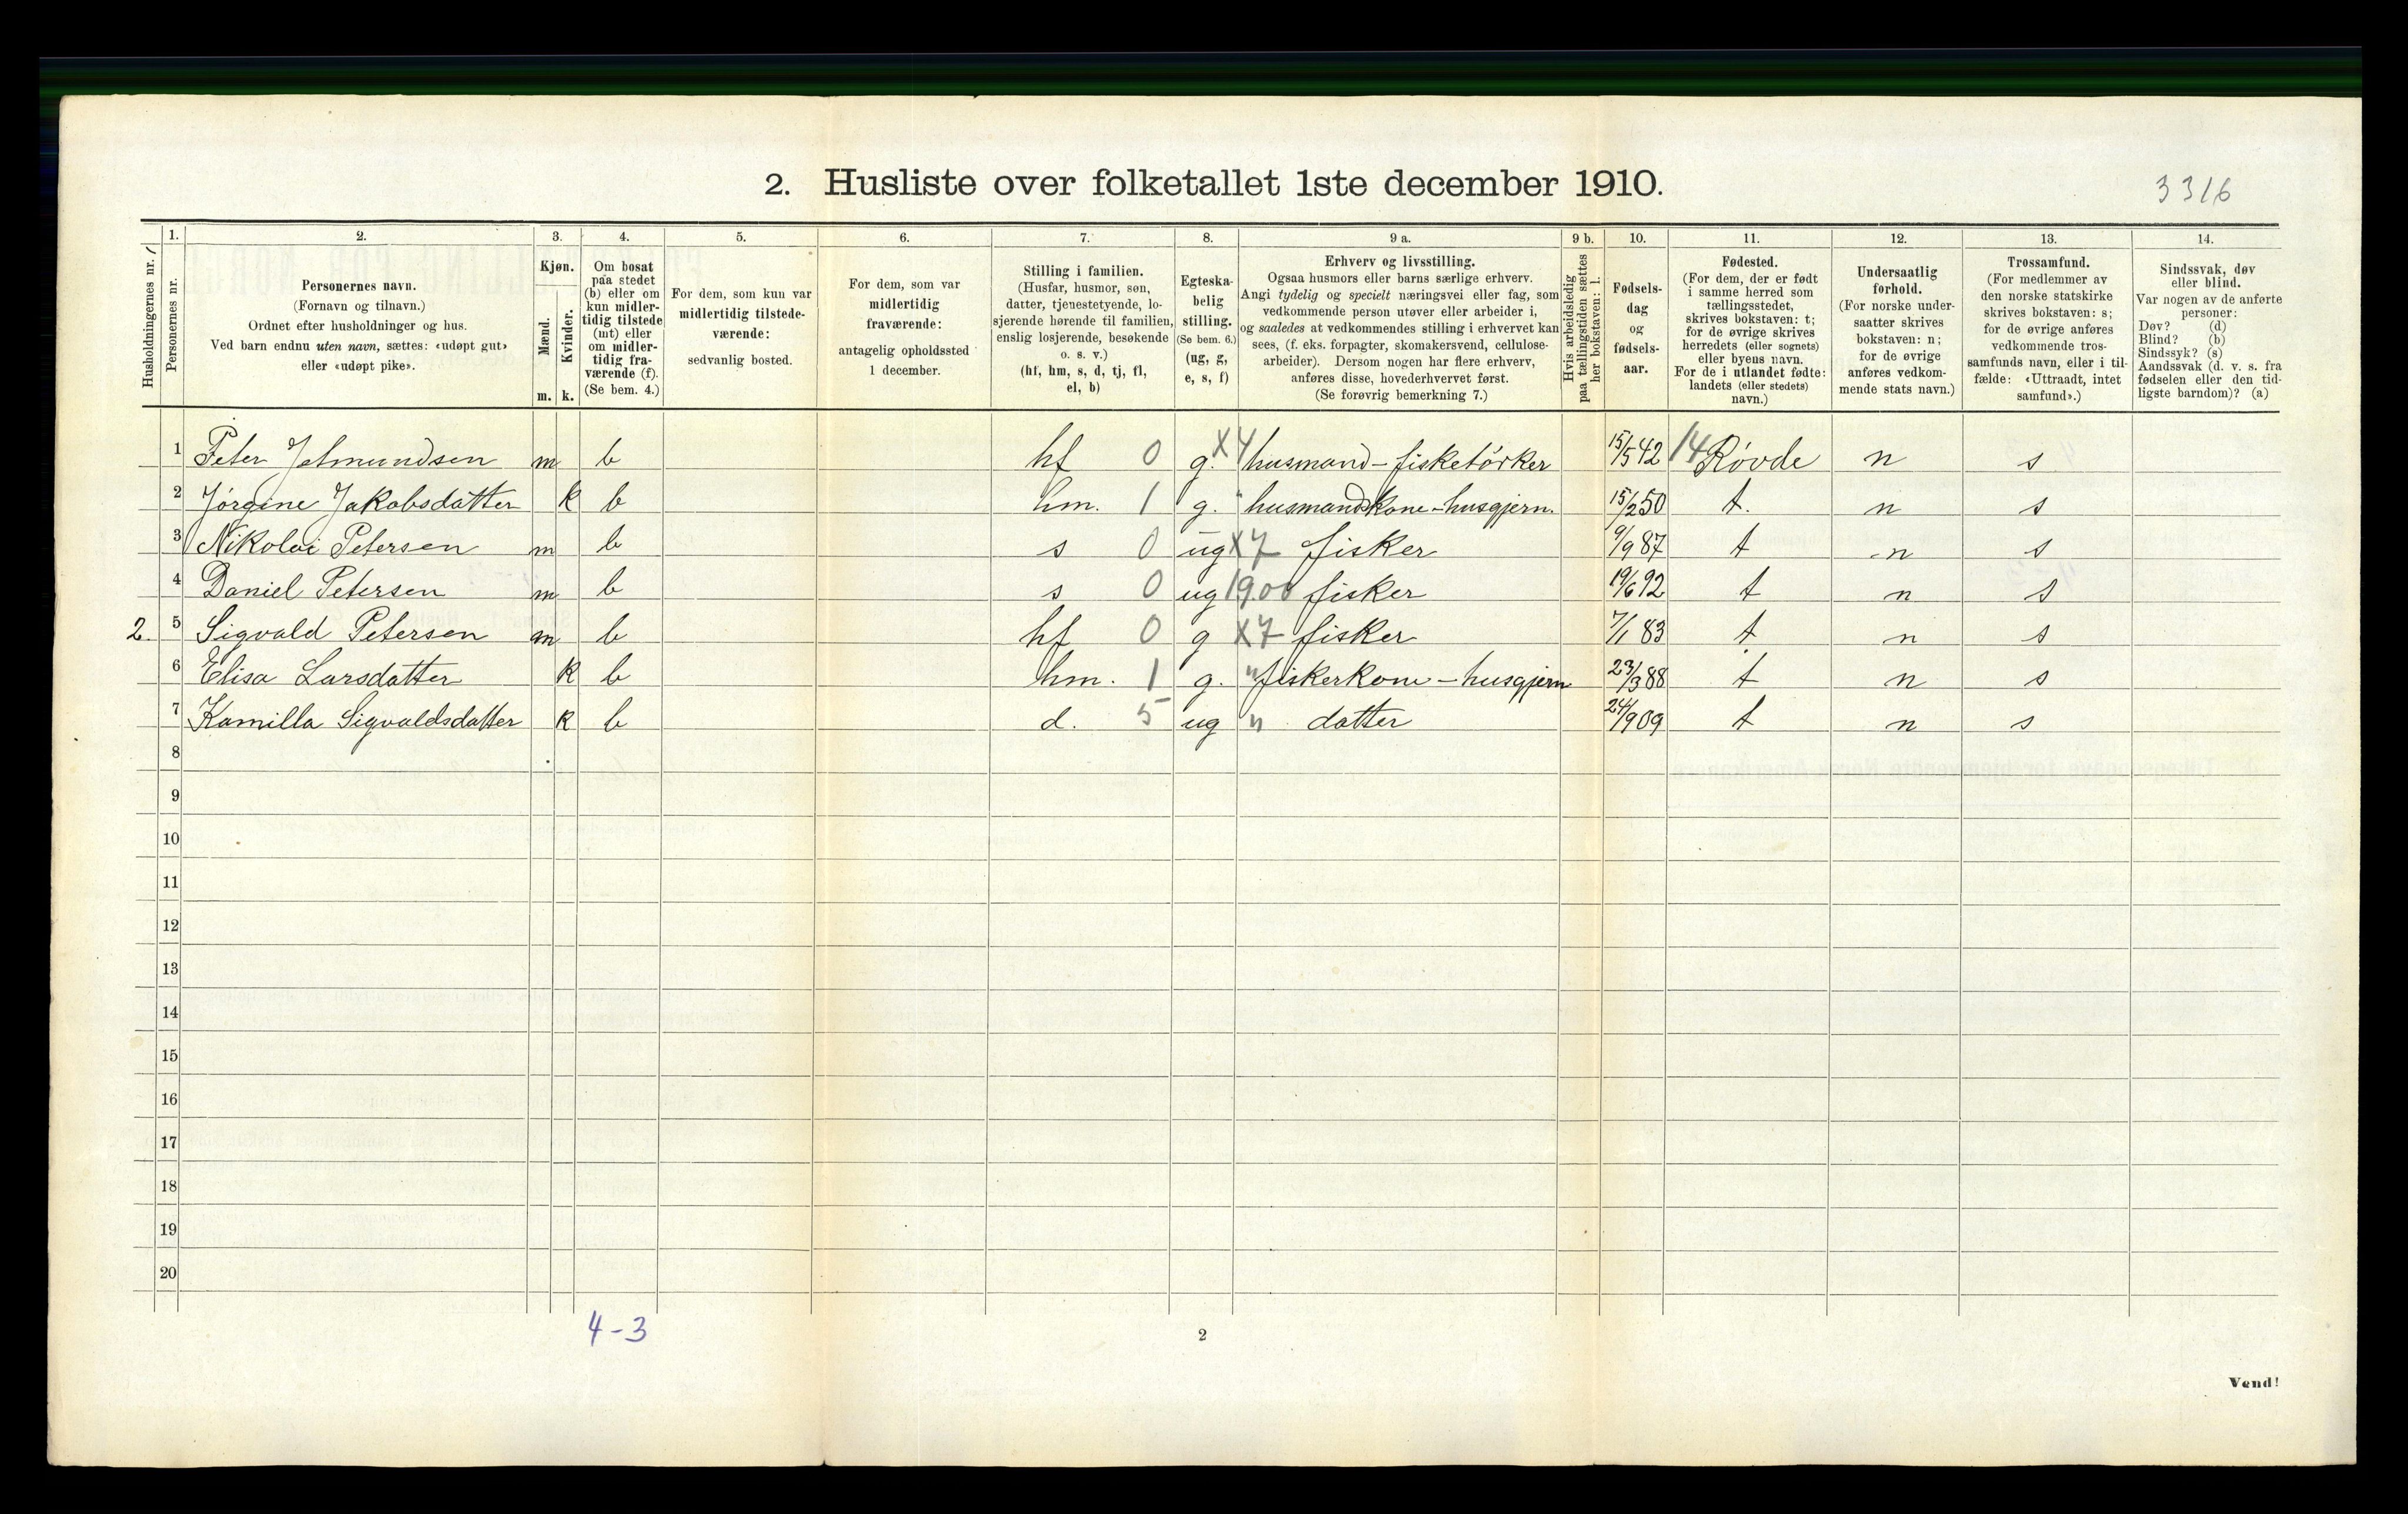 2. Husliste over folketallet 1ste december 1910.
3316
Husholdningernes nr.
1.
Personernes nr.
2.
Personernes navn.
(Fornavn og tilnavn.)
Ordnet efter husholdninger og hus.
Ved barn endnu uten navn, sættes: «udøpt gut»
eller «udøpt pike».
3.
Kjøn.
Mænd.
Kvinder.
m. k.
4.
Om bosat
paa stedet
(b) eller om
kun midler-
tidig tilstede
(mt) eller
om midler-
tidig fra-
værende (f).
(Se bem. 4.)
5.
For dem, som kun var
midlertidig tilstede-
værende:
sedvanlig bosted.
6.
For dem, som var
midlertidig
fraværende:
antagelig opholdssted
1 december.
7.
Stilling i familien.
(Husfar, husmor, søn,
datter, tjenestetyende, lo-
sjerende hørende til familien,
enslig losjerende, besøkende
o. s. v.)
(hf, hm, s, d, tj, fl,
el, b)
8.
Egteska-
belig
stilling.
(Se bem. 6.)
(ug, g,
e, s, f)
9 a.
Erhverv og livsstilling.
Ogsaa husmors eller barns særlige erhverv.
Angi tydelig og specielt næringsvei eller fag, som
vedkommende person utøver eller arbeider i,
og saaledes at vedkommendes stilling i erhvervet kan
sees, (f. eks. forpagter, skomakersvend, cellulose-
arbeider). Dersom nogen har flere erhverv,
anføres disse, hovederhvervet først.
(Se forøvrig bemerkning 7.)
9 b.
Hvis arbeidsledig
paa tællingstiden sættes
her bokstaven: l.
10.
Fødsels-
dag
og
fødsels-
aar.
11.
Fødested.
(For dem, der er født
i samme herred som
tællingsstedet,
skrives bokstaven: t;
for de øvrige skrives
herredets (eller sognets)
eller byens navn.
For de i utlandet fødte:
landets (eller stedets)
navn.)
12.
Undersaatlig
forhold.
(For norske under-
saatter skrives
bokstaven: n;
for de øvrige
anføres vedkom-
mende stats navn.)
13.
Trossamfund.
(For medlemmer av
den norske statskirke
skrives bokstaven: s;
for de øvrige anføres
vedkommende tros-
samfunds navn, eller i til-
fælde: «Uttraadt, intet
samfund».)
14.
Sindssvak, døv
eller blind.
Var nogen av de anførte
personer:
Døv? (d)
Blind? (b)
Sindssyk? (s)
Aandssvak (d. v. s. fra
fødselen eller den tid-
ligste barndom)? (a)
1 Peter Jetmundsen m b hf 0 g. X4 husmand - fisketörker 15/5 42 14 Rövde n s
2 Jörgine Jakobsdatter k b hm. 1 g. " husmandskone - husgjern. 15/2 50 t. n s
3 Nikolai Petersen m b s 0 ug X7 fisker 9/9 87 t n s
4 Daniel Petersen m b s 0 ug 1900 fisker 19/6 92 t n s
2. 5 Sigvald Petersen m b hf 0 g X7 fisker 7/1 83 t n s
6 Elisa Larsdatter k b hm. 1 g. " fiskerkone - husgjern 23/3 88 t n s
7 Kamilla Sigvaldsdatter k b d. 5 ug " datter 24/9 09 t n s
8
9
10
11
12
13
14
15
16
17
18
19
20
4-3
2
Vend!